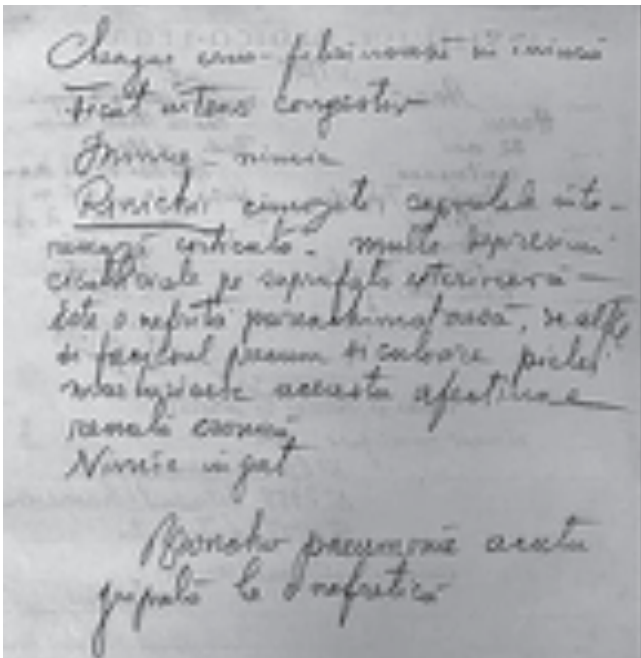 Cheaguri cruo-fibrinoase în inimă
Ficat intens congestiv
Splina - nimic
Rinichii cianozați capsulele
corticală. multe depresiuni
cicatriciale pe suprafața exterioară -
Este o nefrită parenchimatoasă, de altfel
și faciesul precum și culoare pielei
mărturisesc aceasta afecțiune
renală cronică
Nimic în gât
Broncho pneumonie acută
gripală la o nefretică